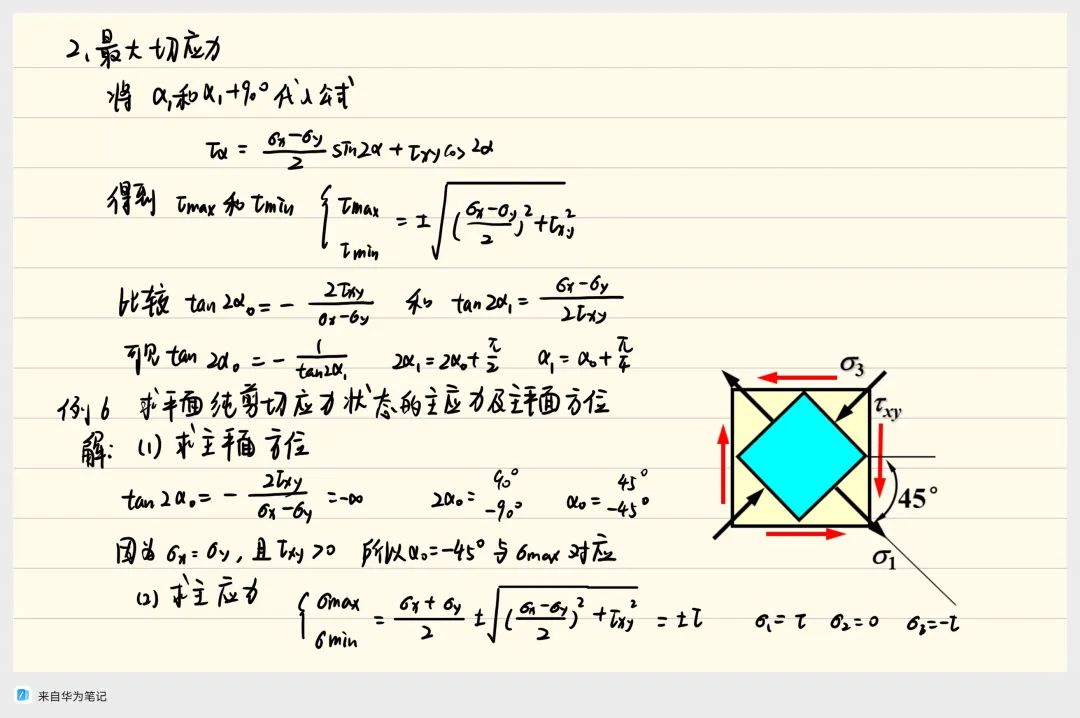 2、最大切应力
将 α₁和α₁+90°代入公式
τα = (σx-σy)/2 sin2α + τxy cos 2α
得到 τmax 和 τmin { τmax τmin = ±√(((σx-σy)/2)² + τxy²)
比较 tan 2α₀ = - 2τxy/(σx-σy) 和 tan 2α₁ = (σx-σy)/2τxy
可见 tan 2α₀ = - 1/tan2α₁ 2α₁ = 2α₀ + π/2 α₁ = α₀ + π/4
例6 求平面纯剪切应力状态的主应力及主平面方位
解: (1) 求主平面方位
tan 2α₀ = - 2τxy/(σx-σy) = -∞ 2α₀ = 90° -90° α₀ = 45° -45°
因为 σx = σy, 且 τxy > 0 所以 α₀ = -45° 与 σmax 对应
(2) 求主应力
{ σmax σmin = (σx+σy)/2 ± √(((σx-σy)/2)² + τxy²) = ±τ σ₁ = τ σ₂ = 0 σ₃ = -τ
σ₃
τxy
45°
σ₁
来自华为笔记